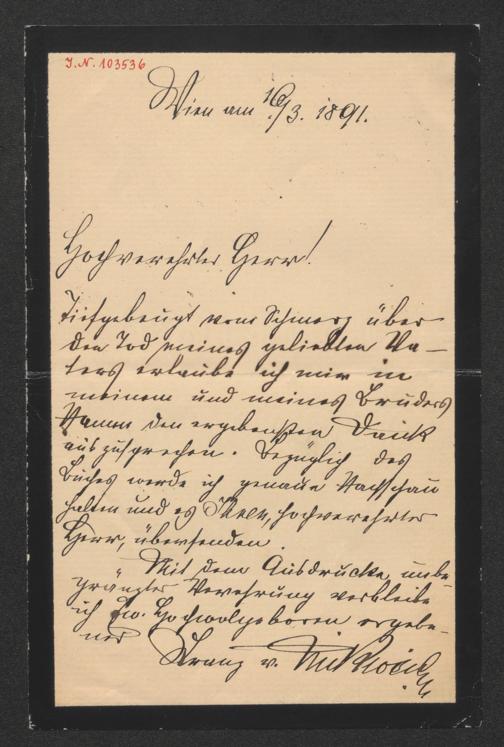 J.N. 103536
Wien am 16/3. 1891.
Hochverehrter Herr!
Tiefgebeugt vom Schmerz über
den Tod meines geliebten Va-
ters erlaube ich mir in
meinem und meines Bruders
Namen den ergebensten Dank
auszusprechen. Bezüglich des
Buches werde ich genaue Nachschau
halten und es Ihnen, hochverehrter
Herr, übersenden.
Mit dem Ausdrucke unbe-
gränzter Verehrung verbleibe
ich Ew. Hochwolgeboren ergebe-
ner
Franz v. Miklosich